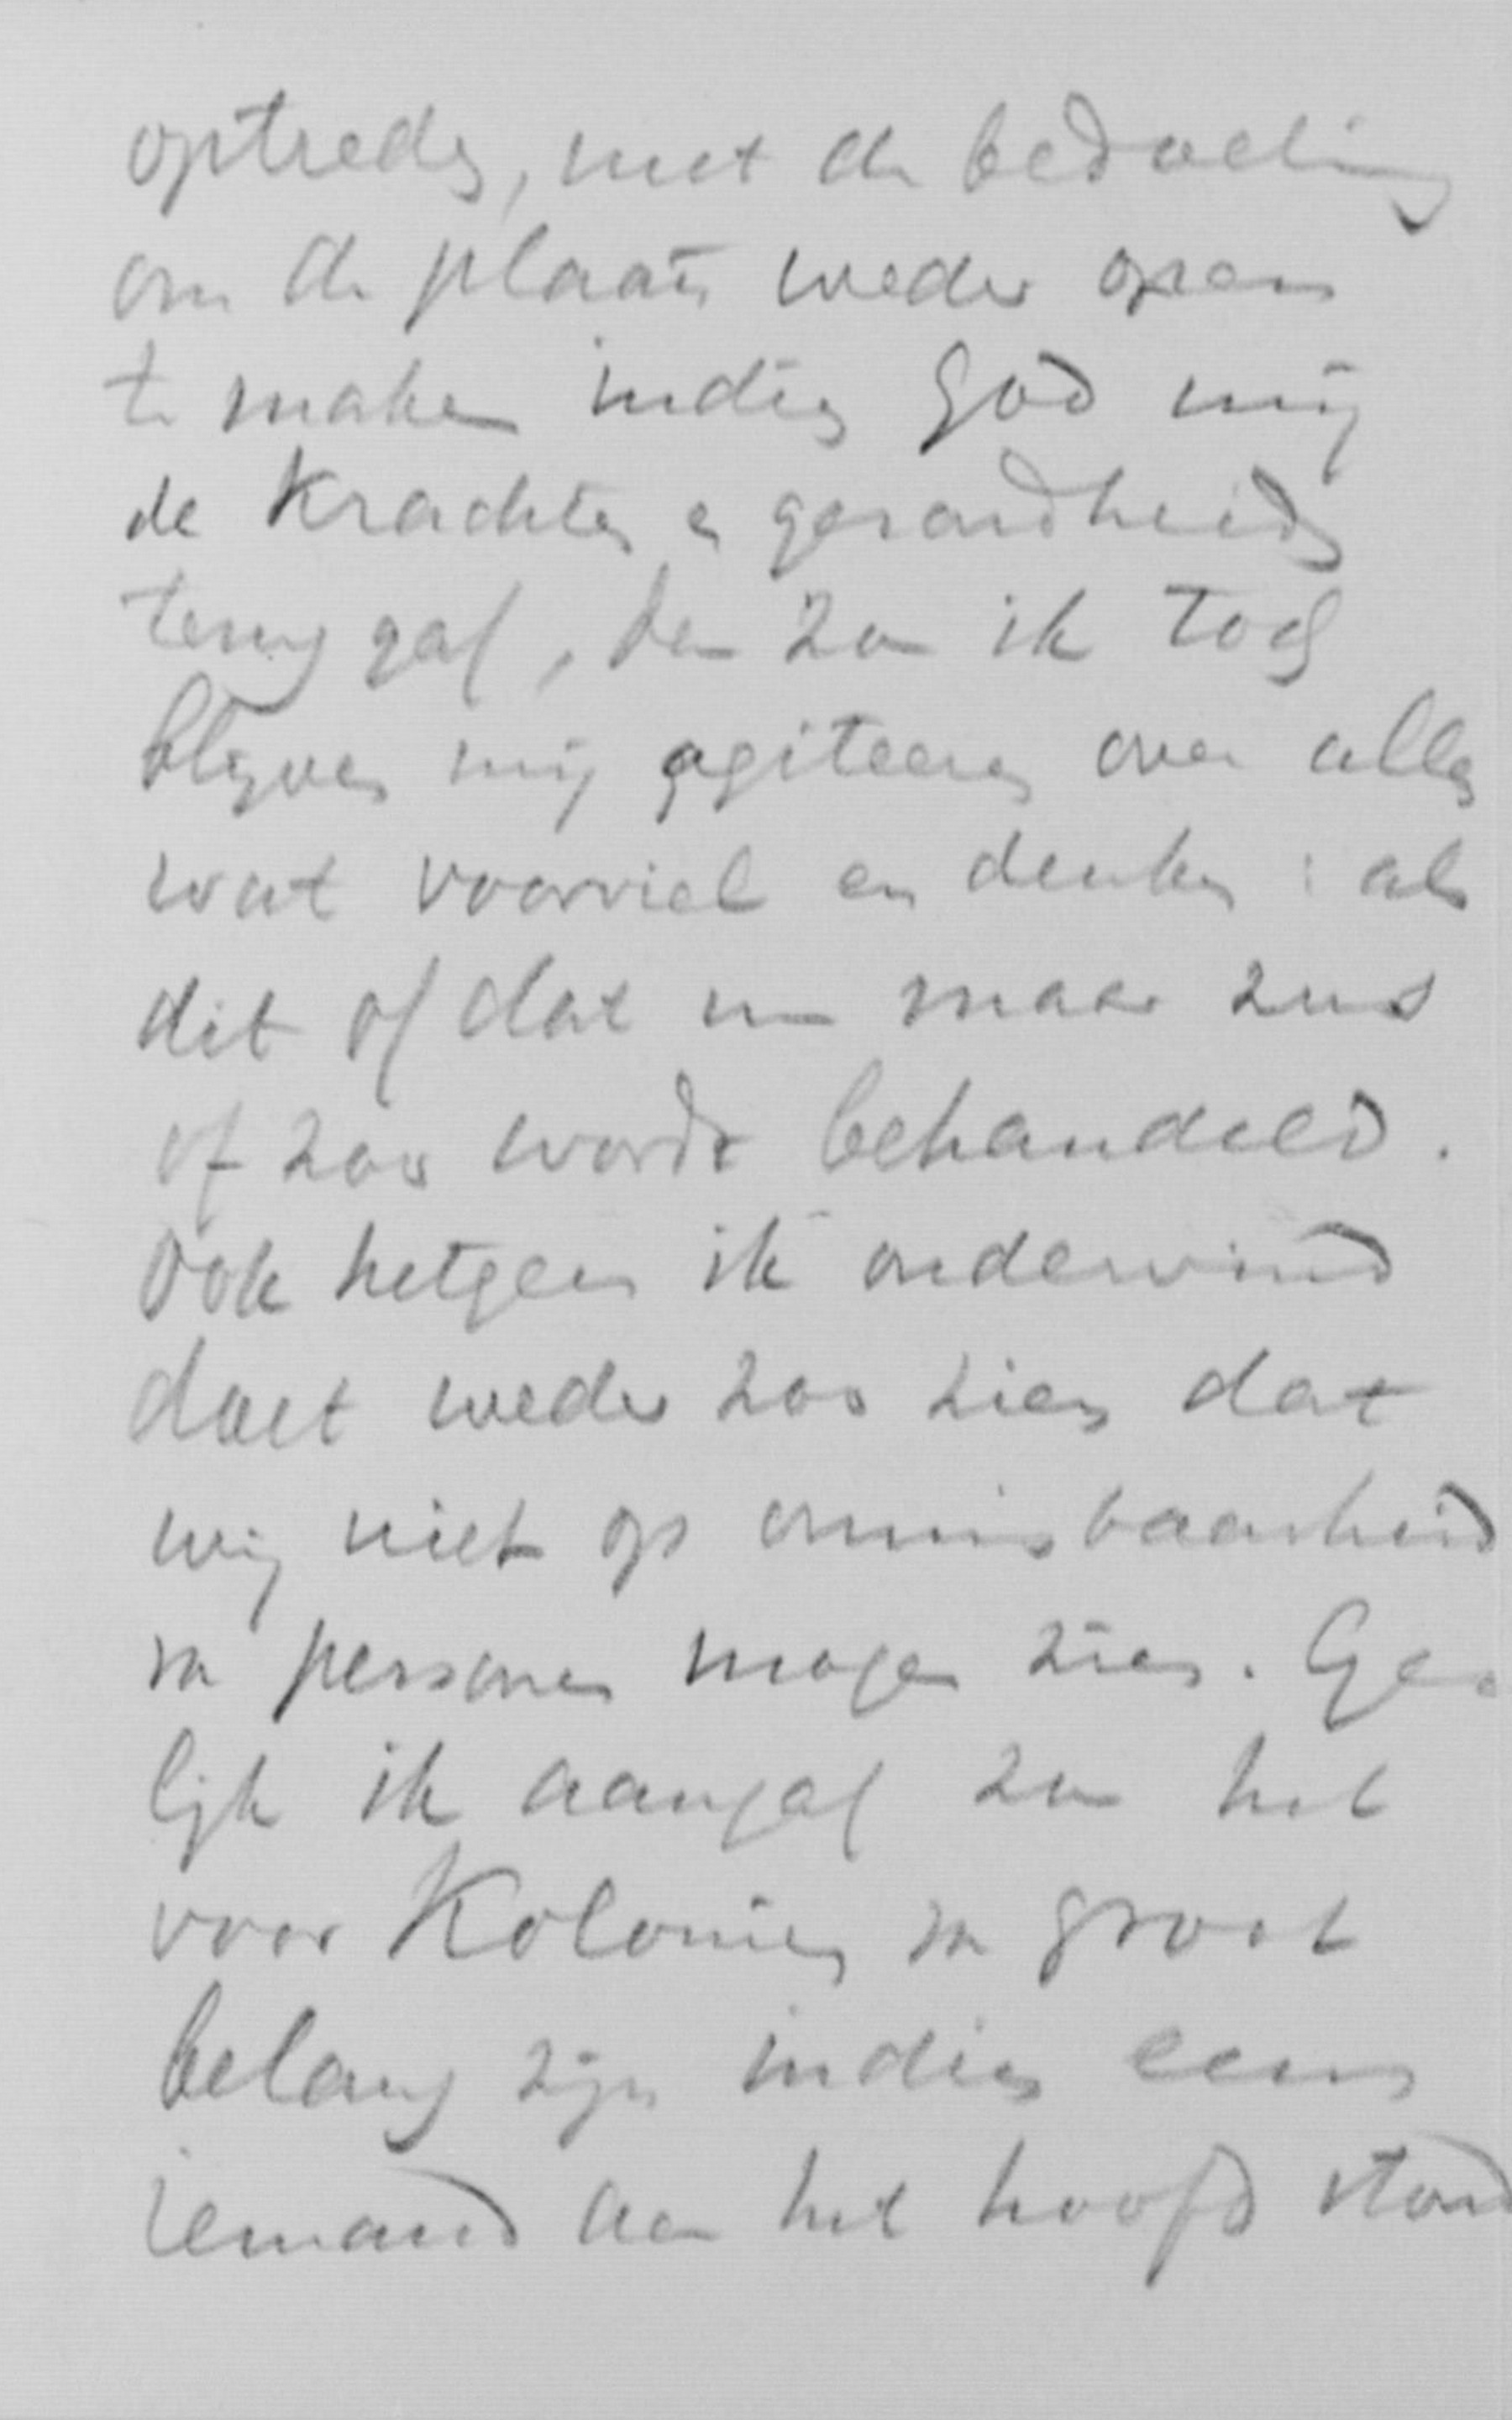 optreden, met de bedoeling
om de plaats weder open
te maken indien God mij
de krachten en gezondheid
terug gaf, dan zou ik toch
blijven mij agiteeren over alles
wat voorviel en denken: als
dit of dat nu maar zus
of zoo wordt behandeld.
Ook hetgeen ik ondervind
doet weder zoo zien dat
wij niet op onmisbaarheid
van personen mogen zien. Ge=
lijk ik aangaf zou het
voor Koloniën van groot
belang zijn indien eens
iemand aan het hoofd stond